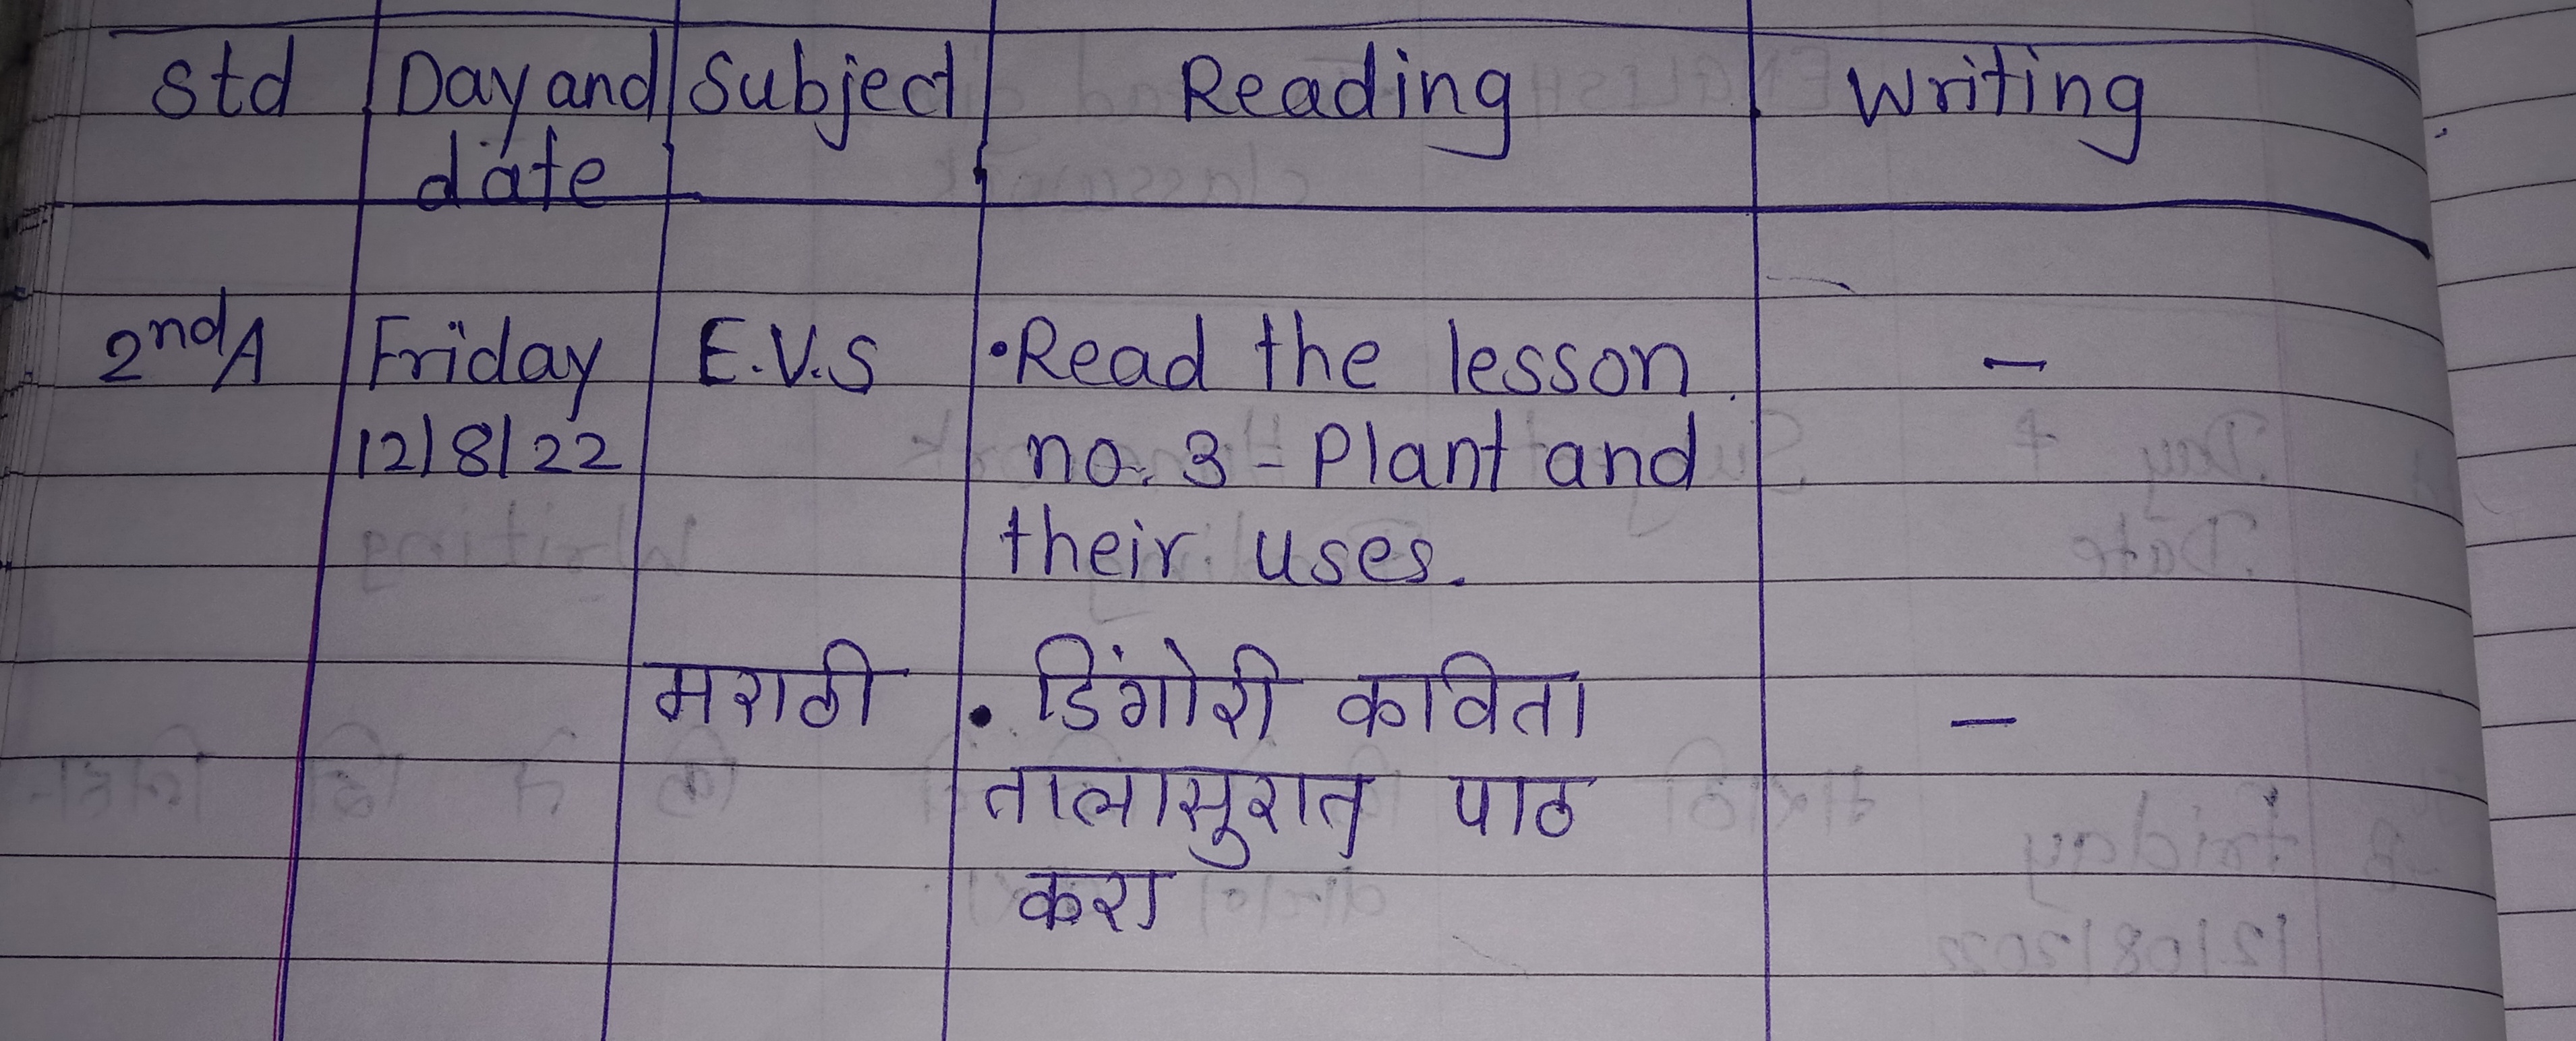 Std Day and Subject Reading Writing
date
2nd A Friday E.V.S • Read the lesson –
12/8/22 no. 3 - Plant and
their uses.
मराठी • डिंगोरी कविता –
तालासुरात पाठ
करा